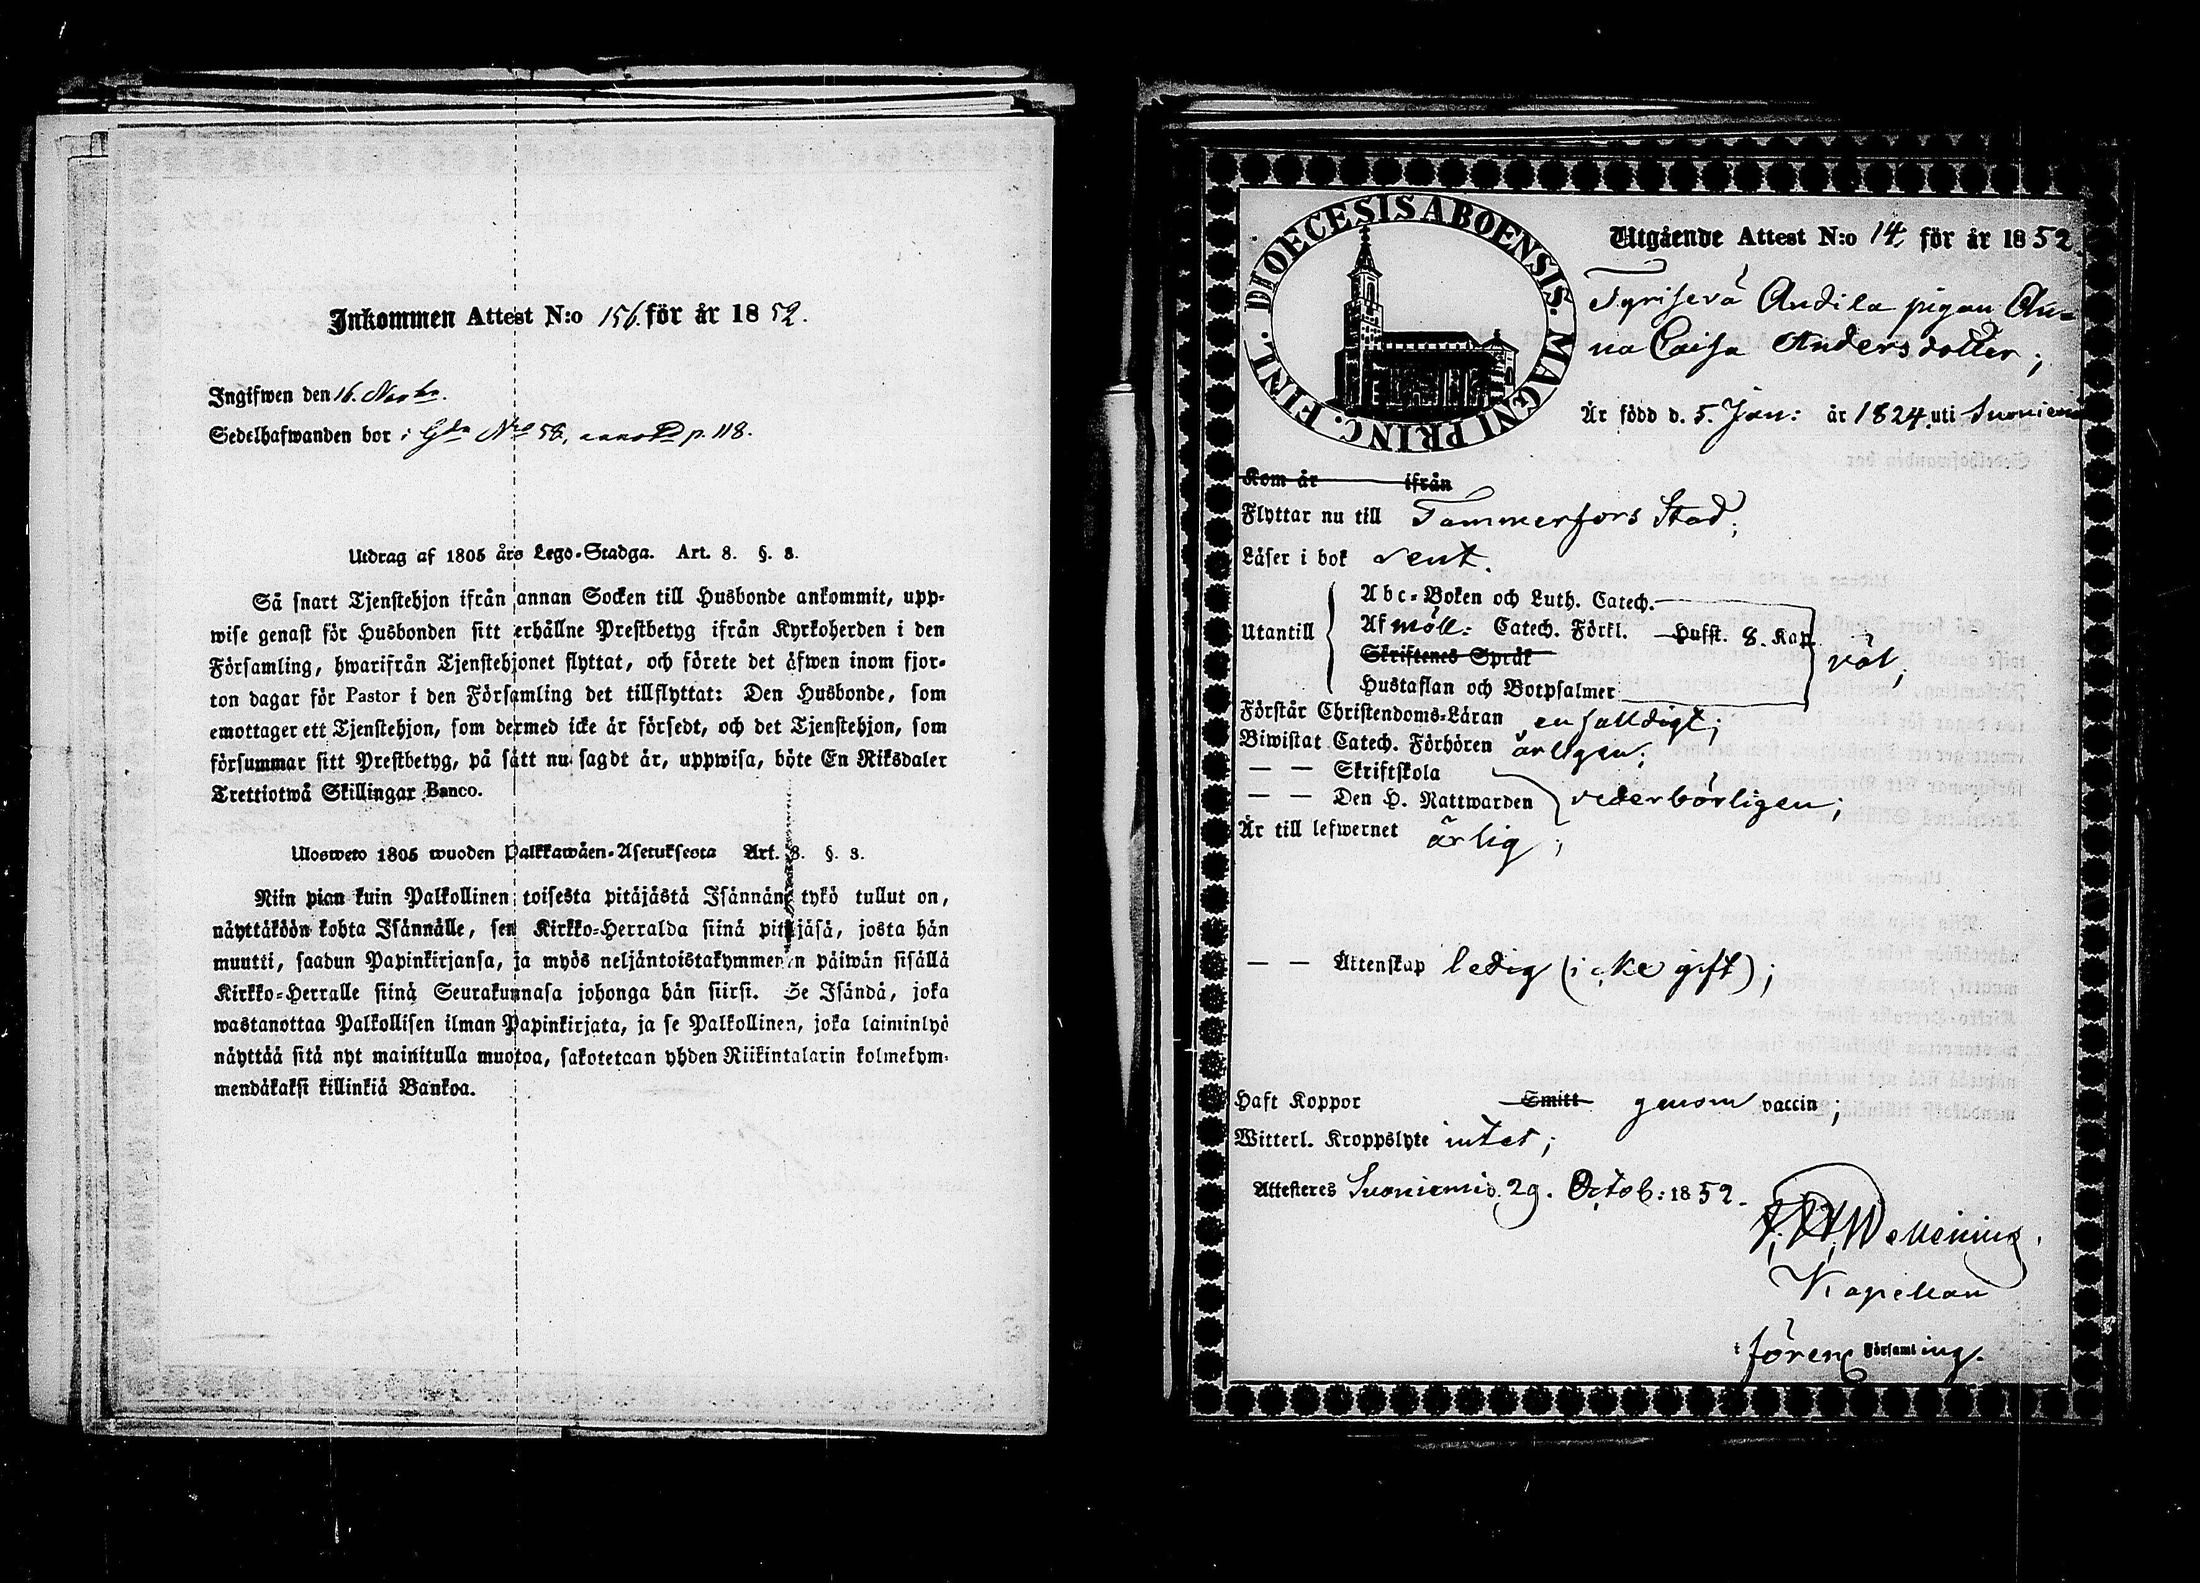 Inkommen Attest N:o 156. för år 1852.
Ingifwen den 16. Novbr.
Sedelhafwanden bor i Gdn Nro 58, p. 118.
Utdrag af 1805 års Lego-Stadga. Art. 8. §. 3.
Så snart Tjenstehjon ifrån annan Socken till Husbonde ankommit, upp-
wise genast för Husbonden sitt erhållne Prestbetyg ifrån Kyrkoherden i den
Församling, hwarifrån Tjenstehjonet flyttat, och förete det äfwen inom fjor-
ton dagar för Pastor i den Församling det tillflyttat: Den Husbonde, som
emottager ett Tjenstehjon, som dermed icke är försedt, och det Tjenstehjon, som
försummar sitt Prestbetyg, på sätt nu sagdt är, uppwisa, böte En Riksdaler
Trettiotwå Skillingar Banco.
Ulosweto 1805 wuoden Palkkawäen-Asetuksesta Art. 8. §. 3.
Niin pian kuin Palkollinen toisesta pitäjästä Isännän tykö tullut on,
näyttäköön kohta Isännälle, sen Kirkko-Herralda siinä pitäjäsä, josta hän
muutti, saadun Papinkirjansa, ja myös neljäntoistakymmenen päiwän sisällä
Kirkko-Herralle siinä Seurakunnasa johonga hän siirsi. Se Isändä, joka
wastanottaa Palkollisen ilman Papinkirjata, ja se Palkollinen, joka laiminlyö
näyttää sitä nyt mainitulla muotoa, sakotetaan yhden Riikintalarin kolmekym-
mendäkaksi killinkiä Bankoa.
DIOECESIS ABOENSIS. MAGNI PRINC. FINL.
Utgående Attest N:o 14. för år 1852
Tyrisevä Andila pigan An-
na Caisa Andersdotter;
Är född d. 5. Jan: år 1824. uti Suoniemi
Kom år ifrån
Flyttar nu till Tammerfors Stad;
Läser i bok rent.
Abc-Boken och Luth. Catech.
Utantill Af möll: Catech. Förkl. Hufst. 8. Kap. väl;
Skriftenes Språk
Hustaflan och Botpsalmer
Förstår Christendoms-Läran enfalldigt;
Biwistat Catech. Förhören årligen;
— — Skriftskola
— — Den H. Nattwarden vederbörligen;
Är till lefwernet ärlig;
— — Äktenskap ledig (icke gift);
Haft Koppor Smitt genom vaccin;
Witterl. Kroppslyte intet;
Attesteres Suoniemi d. 29. Octob: 1852.
Wellening.
Kapellan
i fören: Församling.